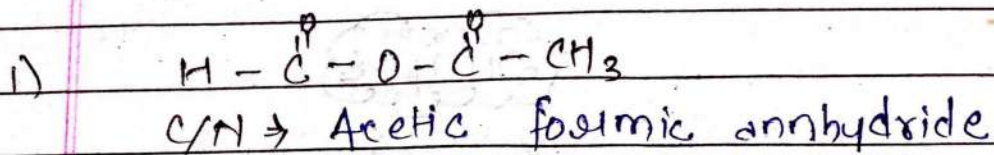 O O
1) H - C - O - C - CH3
C/N → Acetic formic annhydride